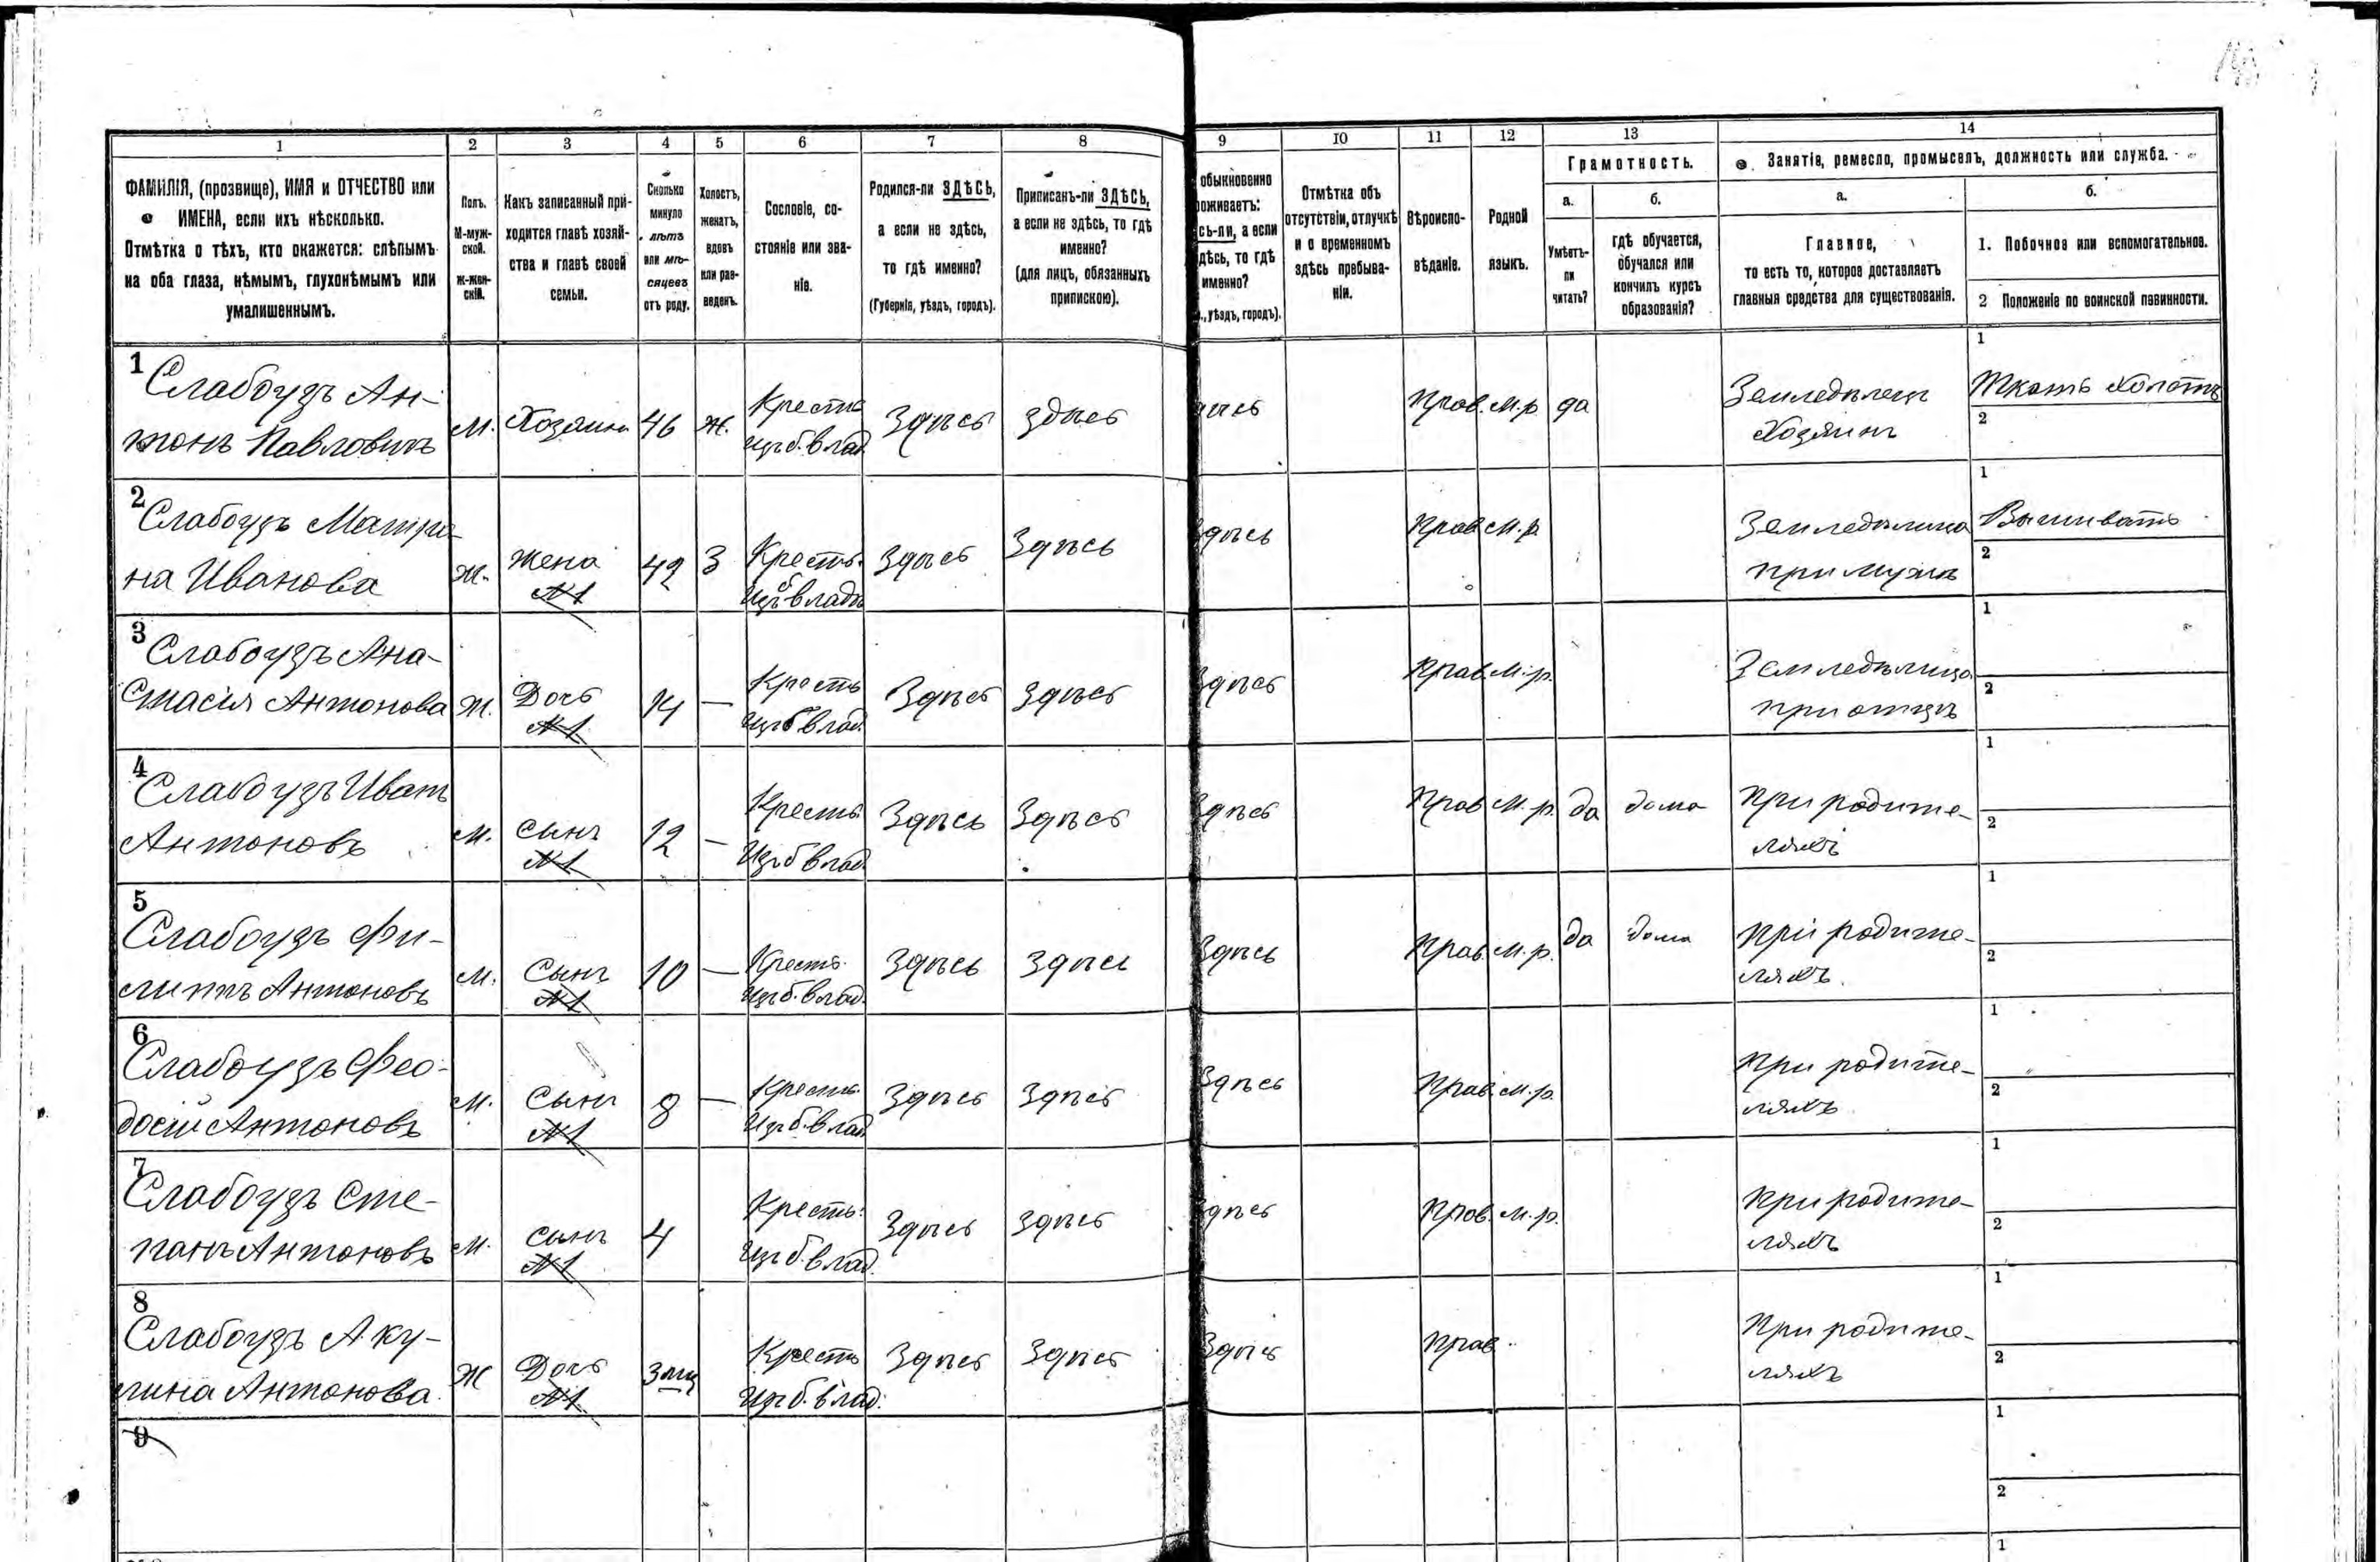 1 2 3 4 5 6 7 8 9 10 11 12 13 14
ФАМИЛІЯ, (прозвище), ИМЯ и ОТЧЕСТВО или
ИМЕНА, если ихъ нѣсколько.
Отмѣтка о тѣхъ, кто окажется: слѣпымъ
на оба глаза, нѣмымъ, глухонѣмымъ или
умалишеннымъ.
Полъ.
М-муж-
ской.
Ж-жен-
скій.
Какъ записанный при-
ходится главѣ хозяй-
ства и главѣ своей
семьи.
Сколько
минуло
лѣтъ
или мѣ-
сяцевъ
отъ роду.
Холостъ,
женатъ,
вдовъ
или раз-
веденъ.
Сословіе, со-
стояніе или зва-
ніе.
Родился-ли ЗДѢСЬ,
а если не здѣсь,
то гдѣ именно?
(Губернія, уѣздъ, городъ).
Приписанъ-ли ЗДѢСЬ,
а если не здѣсь, то гдѣ
именно?
(для лицъ, обязанныхъ
припискою).
обыкновенно
оживаетъ:
сь-ли, а если
дѣсь, то гдѣ
именно?
., уѣздъ, городъ).
Отмѣтка объ
отсутствіи, отлучкѣ
и о временномъ
здѣсь пребыва-
ніи.
Вѣроиспо-
вѣданіе.
Родной
языкъ.
Грамотность.
а.
Умѣетъ-
ли
читать?
б.
гдѣ обучается,
обучался или
кончилъ курсъ
образованія?
Занятіе, ремесло, промыселъ, должность или служба.
а.
Главное,
то есть то, которое доставляетъ
главныя средства для существованія.
б.
1. Побочное или вспомогательное.
2 Положеніе по воинской повинности.
1
Слабоузъ Ан-
тонъ Павловичъ
М.
Хозяинъ
46
Ж.
Крестья
изъ б. влад.
Здѣсь
здѣсь
дѣсь
Прав.
М.р.
да
Земледѣлецъ
Хозяинъ
1
Ткать Холстъ
2
2
Слабоузъ Матре-
на Иванова
Ж.
Жена
№1
42
З
Кресть.
Изъ б владѣ
Здѣсь
Здѣсь
Здѣсь
Прав
М.р.
Земледѣлица
при мужѣ
1
Вышивать
2
3
Слабоузъ Ана-
стасія Антонова
Ж.
Дочь
№1
14
—
Кресть
изъ б влад.
Здѣсь
Здѣсь
Здѣсь
Прав.
М.р.
Земледѣлица
при отцѣ
1
2
4
Слабоузъ Иванъ
Антоновъ
М.
Сынъ
№1
12
—
Кресть
Изъ б влад
Здѣсь
Здѣсь
Здѣсь
Прав
М.р.
да
дома
При родите-
ляхъ
1
2
5
Слабоузъ Фи-
липпъ Антоновъ
М.
Сынъ
№1
10
—
Кресть.
Изъ б. влад.
Здѣсь
Здѣсь
Здѣсь
Прав.
М.р.
да
дома
При родите-
ляхъ.
1
2
6
Слабоузъ Фео-
досій Антоновъ
М.
Сынъ
№1
8
—
Кресть.
Изъ б. влад
Здѣсь
Здѣсь
Здѣсь
Прав.
М.р.
При родите-
ляхъ
1
2
7
Слабоузъ Сте-
панъ Антоновъ
М.
Сынъ
№1
4
Кресть.
Изъ б. влад.
Здѣсь
Здѣсь
Здѣсь
Прав.
М.р.
При родите-
ляхъ
1
2
8
Слабоузъ Аку-
лина Антонова.
Ж
Дочь
№1
3 мц
Кресть
Изъ б. влад.
Здѣсь
Здѣсь
Здѣсь
Прав.
При родите-
ляхъ
1
2
9
1
2
1